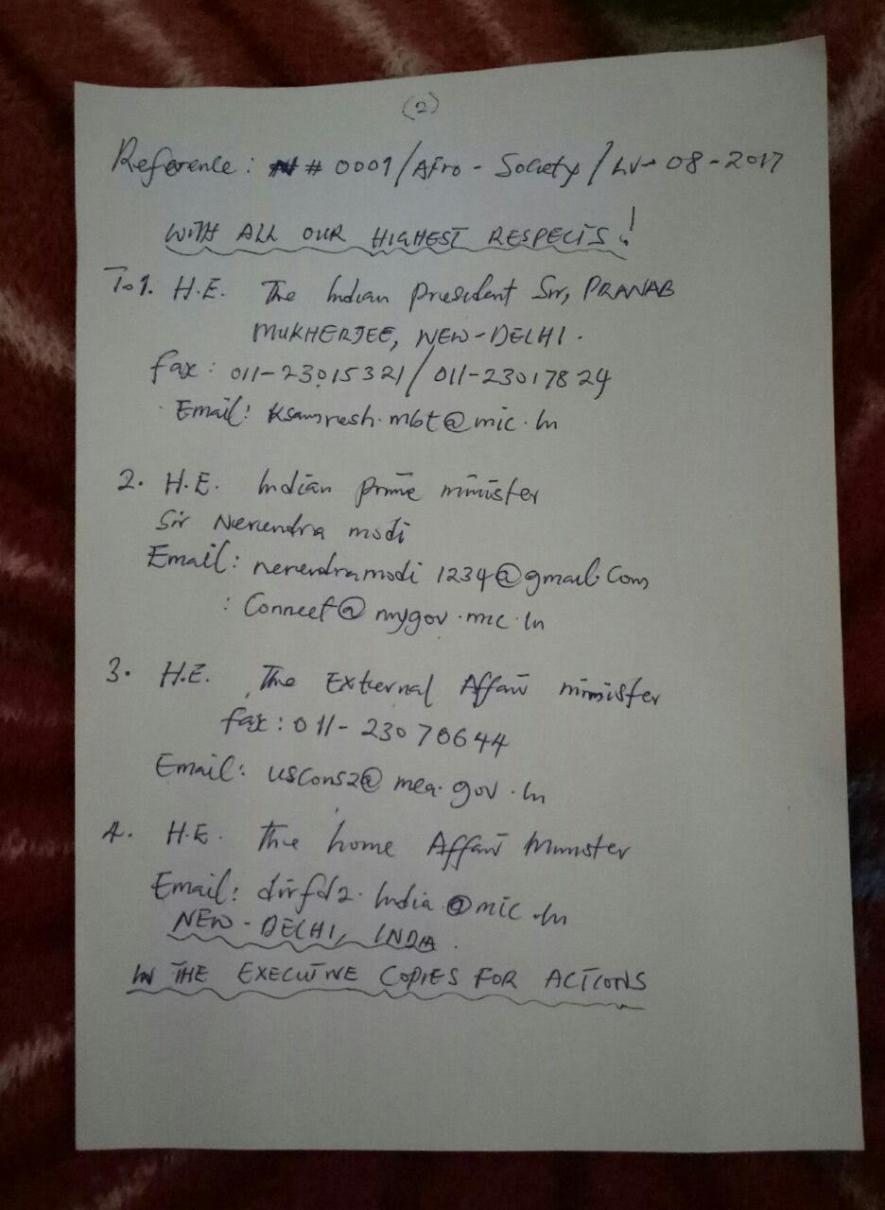 (2)
Reference: # 0001/Afro - Society / LV- 08-2017
WITH ALL OUR HIGHEST RESPECTS!
To 1. H.E. The Indian President Sir, PRANAB
MUKHERJEE, NEW-DELHI.
fax: 011-23015321/011-23017824
Email: @mic.In
2. H.E. Indian prime minister
Sir Nerendra modi
Email: nerendramodi 1234@gmail.com
: Connect@ mygov.mic.In
3. H.E. The External Affair minister
fax: 011- 23070644
Email: uscons2@ mea.gov.In
4. H.E. The home Affair Minister
Email: dirfd2.India @mic.In
NEW-DELHI, INDIA.
IN THE EXECUTIVE COPIES FOR ACTIONS